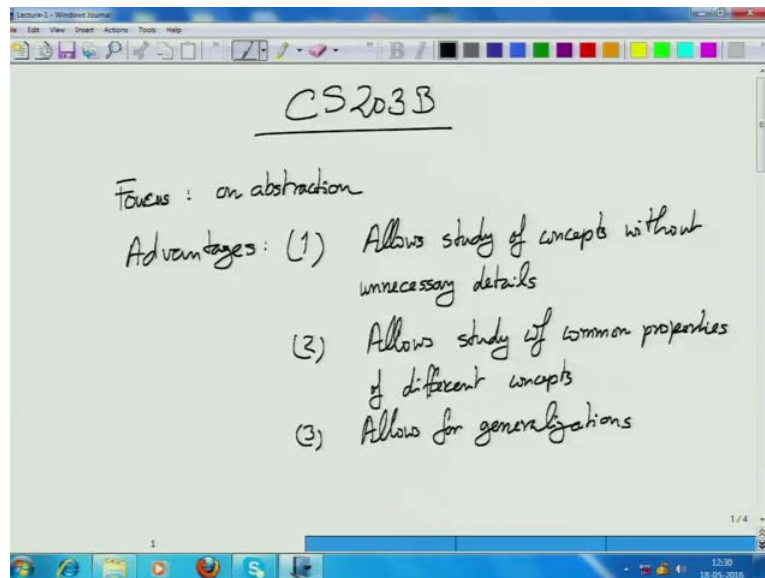 Lecture-1 - Windows Journal
File Edit View Insert Actions Tools Help
CS203B
Foucus : on abstraction
Advantages : (1) Allows study of concepts without
unnecessary details
(2) Allows study of common properties
of different concepts
(3) Allows for generalizations
1/4
1
12:30
18-05-2016